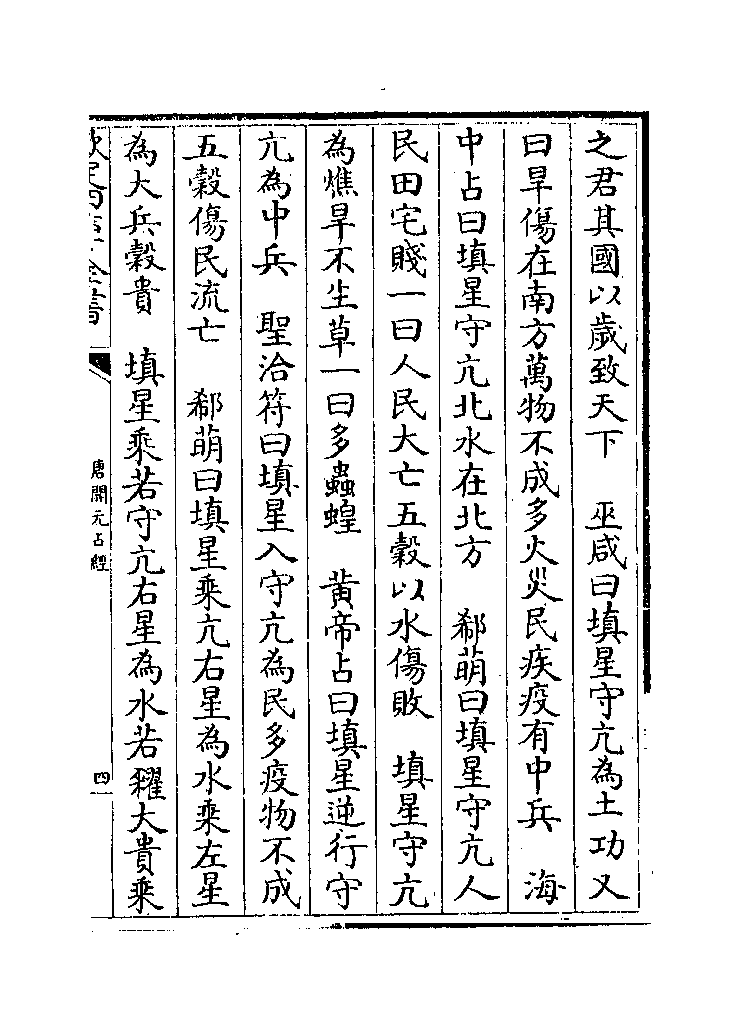 之君其國以歲致天下　巫咸曰填星守亢為土功又
曰旱傷在南方萬物不成多火災民疾疫有中兵　海
中占曰填星守亢北水在北方　郗萌曰填星守亢人
民田宅賤一曰人民大亡五穀以水傷敗　填星守亢
為燋旱不生草一曰多蟲蝗　黄帝占曰填星逆行守
亢為中兵　聖洽符曰填星入守亢為民多疫物不成
五穀傷民流亡　郗萌曰填星乘亢右星為水乘左星
為大兵穀貴　填星乘若守亢右星為水若糴大貴乘
欽定四庫全書
唐開元占經
四